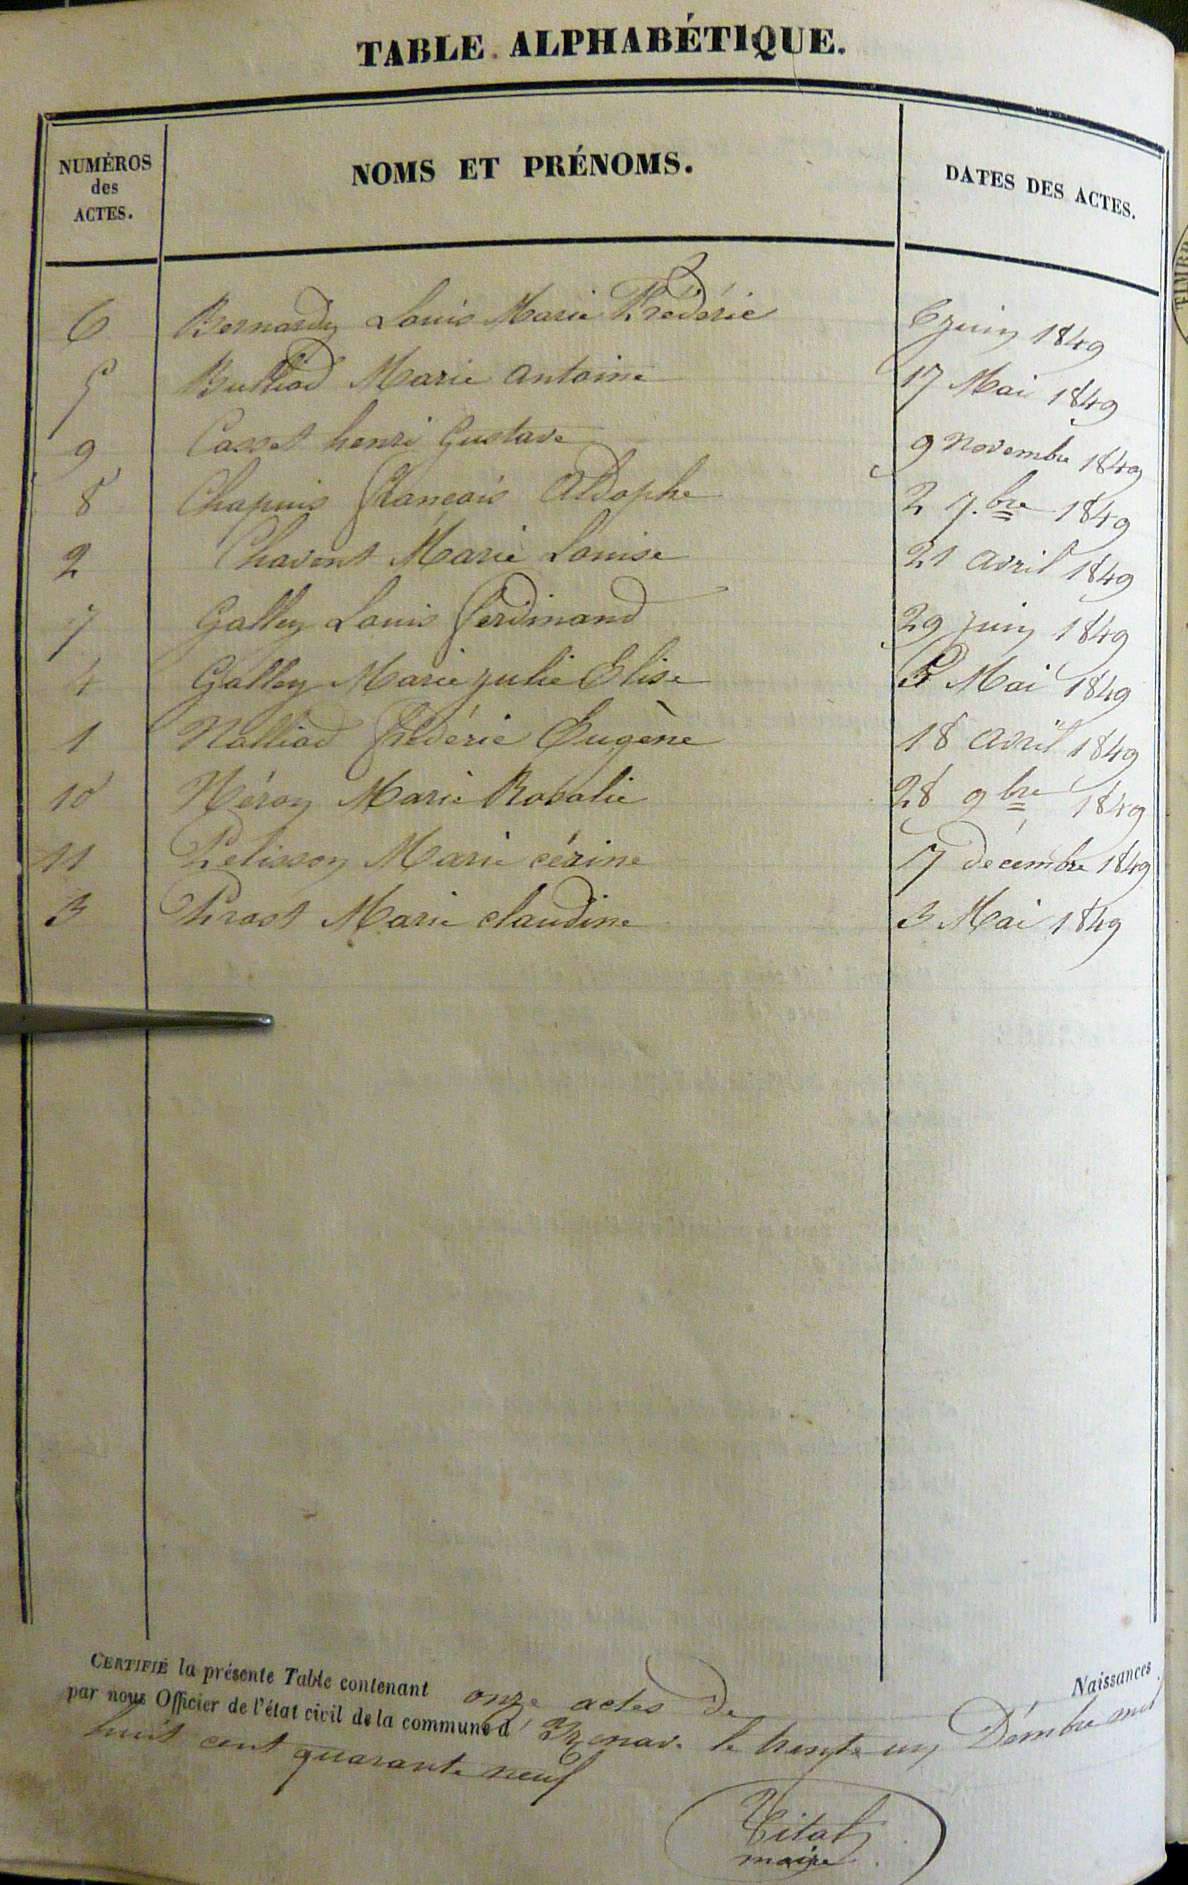 TABLE ALPHABÉTIQUE.
NUMÉROS des ACTES. NOMS ET PRÉNOMS. DATES DES ACTES.
6 Bernardy Louis Marie Frédéric 6 juin 1849
5 Bulliod Marie antoine 17 Mai 1849
9 Casset henri Gustave 9 novembre 1849
8 Chapuis françois Aldophe 2 7.bre 1849
2 Chavent Marie Louise 21 avril 1849
7 Galley Louis ferdinand 29 juin 1849
4 Galley Marie julie Elise 5 Mai 1849
1 Nalliod frédéric Eugène 18 avril 1849
10 Néron Marie Rosalie 28 9bre 1849
11 Pelisson Marie cérine 7 décembre 1849
3 Prost Marie claudine 3 Mai 1849
CERTIFIÉ la présente Table contenant onze actes de Naissances
par nous Officier de l'état civil de la commune d' le trente un Démbre mil
huit cent quarante neuf
Vital
maire
TIMBR